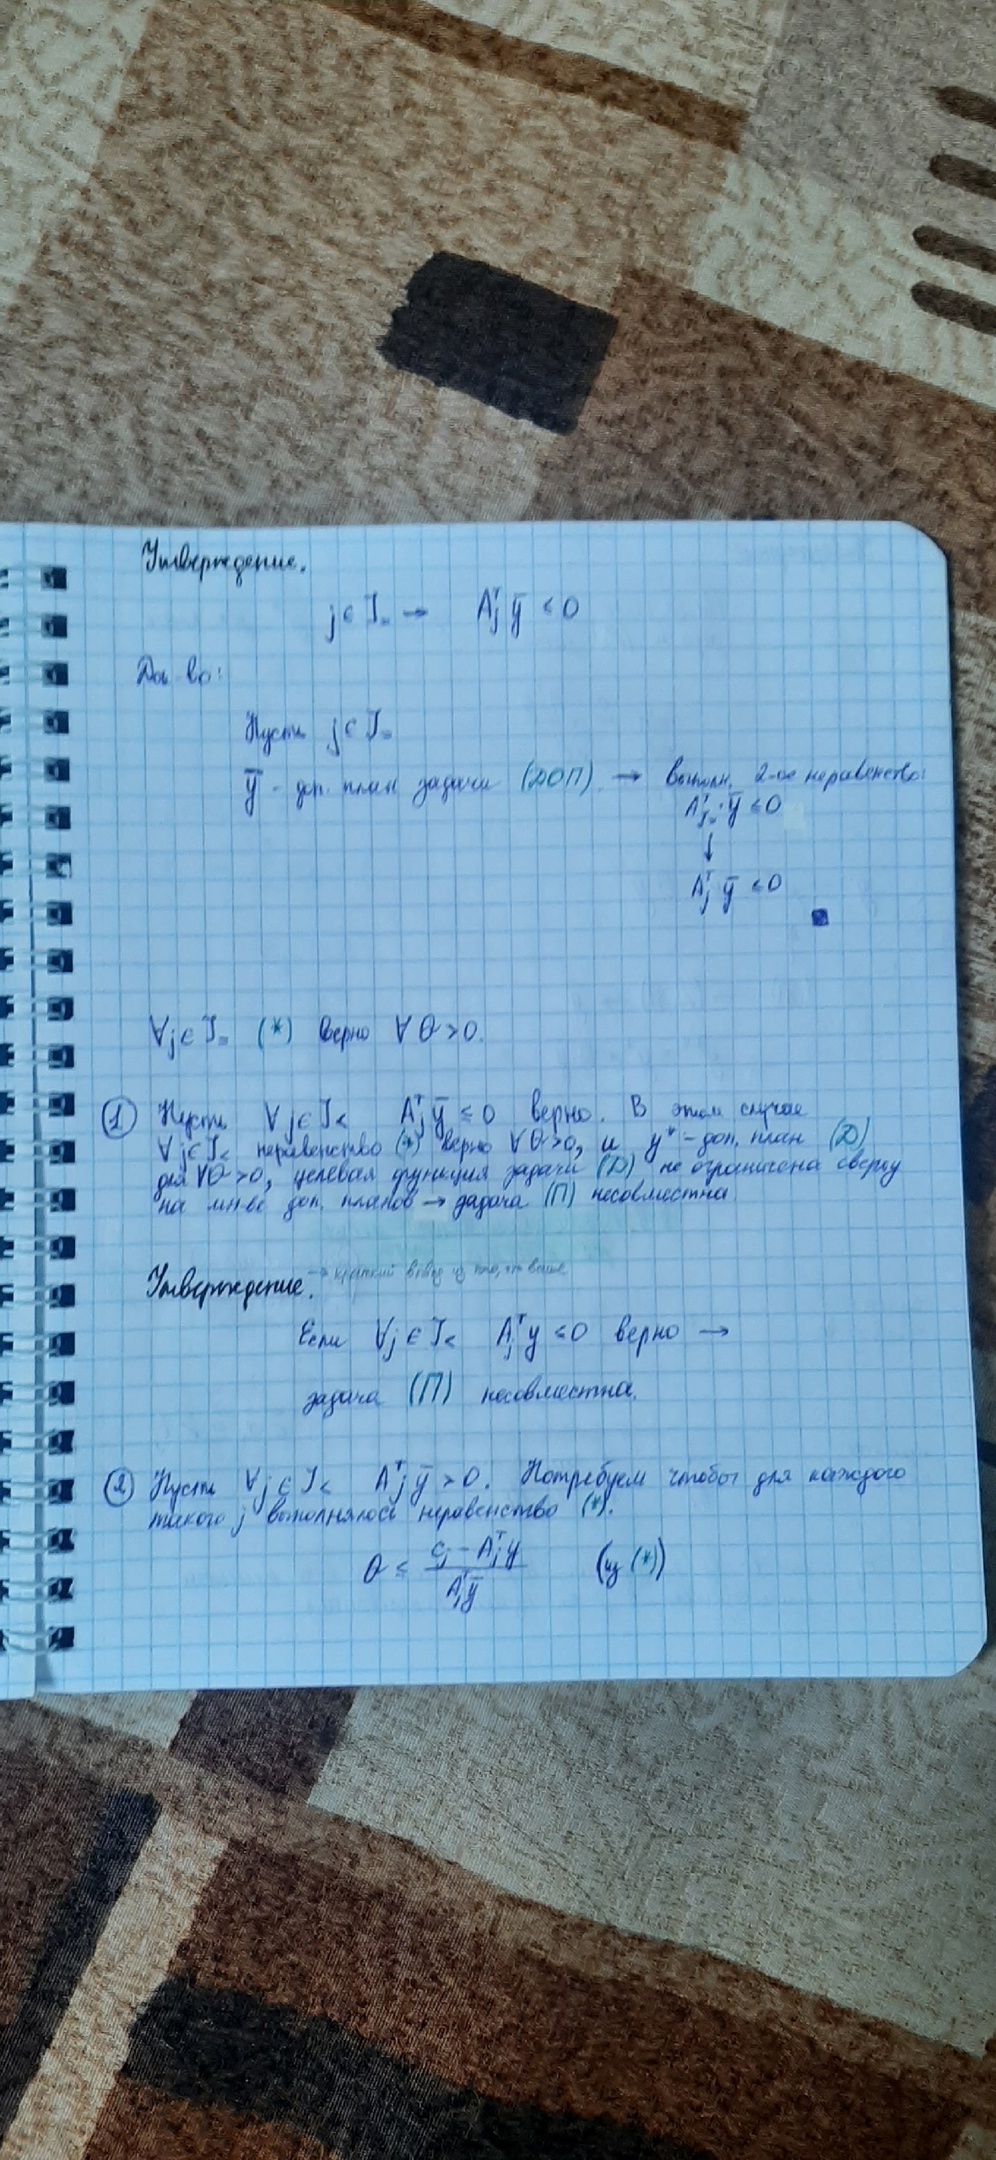 Утверждение.
j ∈ J₌ → Aⱼᵀ ȳ ≤ 0
Док-во:
Пусть j ∈ J₌
ȳ - доп. план задачи (ДОП) → выполн. 2-ое неравенство:
Aᵀ_J₌ · ȳ ≤ 0
↓
Aⱼᵀ ȳ ≤ 0
∀j ∈ J₌ (*) верно ∀ θ > 0.
① Пусть ∀ j ∈ J< Aⱼᵀ ȳ ≤ 0 верно. В этом случае
∀j ∈ J< неравенство (*) верно ∀θ > 0, и y* - доп. план (D)
для ∀θ > 0, целевая функция задачи (D) не ограничена сверху
на мн-ве доп. планов → задача (П) несовместна.
Утверждение. → краткий вывод из того, что выше
Если ∀j ∈ J< Aⱼᵀ y ≤ 0 верно →
задача (П) несовместна.
② Пусть ∀j ∈ J< Aⱼᵀ ȳ > 0. Потребуем чтобы для каждого
такого j выполнялось неравенство (*).
θ ≤ (cⱼ - Aⱼᵀ y) / (Aⱼᵀ ȳ) (из (*))